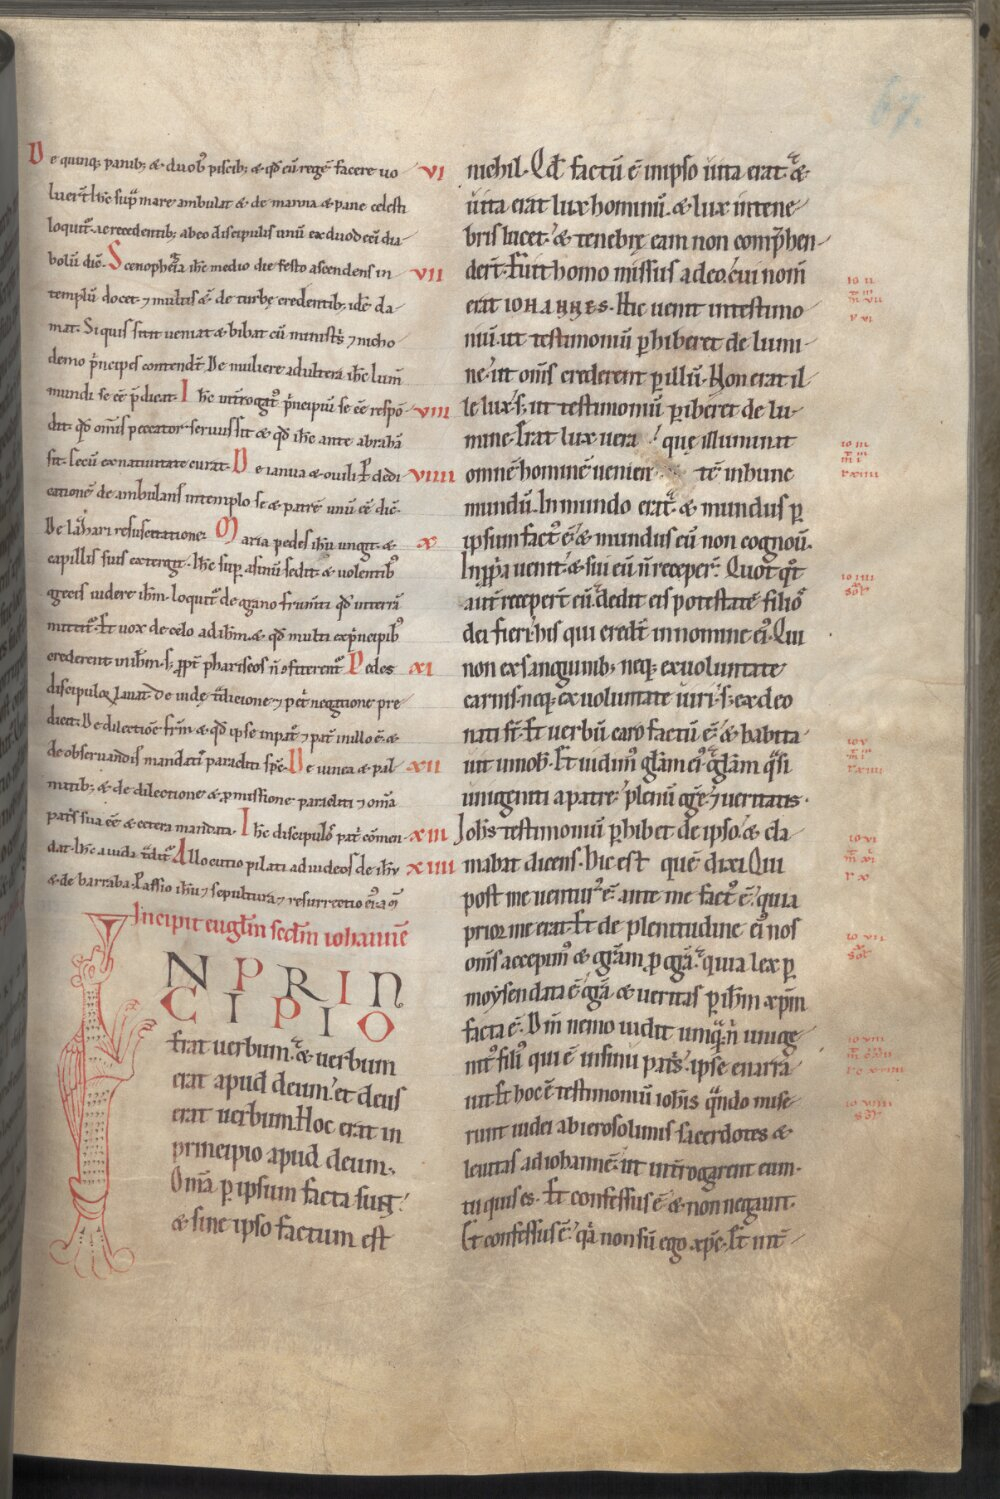 67.
De quinq; panib; & duob' piscib; & qd cū regē facere uo VI
luer̄t ihc sup mare ambulat & de manna & pane celesti
loquit̄. ac recedentib; ab eo discipulis unū ex duodecī dia
bolū dic̄. Scenophegia ihc medio die festo ascendens in VII
templū docet. ⁊ multis & de turbę credentib; ide clā
mat. Siquis sitit ueniat & bibat cū ministris ⁊ nicho
demo p̄ncipes contendt̄. De muliere adultera. ihc lum̄
mundi se eē p̄dicat. Ihc int̄rogat' p̄ncipiū se eē respō VIII
dit. qd om̄is peccator seruus sit & qd ihc ante abrahā
sit. Cecū ex natiuitate curat. De ianua & ouili & dedi VIIII
catione deambulans in templo se & patrē unū eē dic̄.
De lazari resuscitatione. Maria pedes ihu ungit & X
capillis suis extergit. Ihc sup asinū sedit. & uolentib'
grecis uidere ihm. loquit̄ de grano frum̄ti qd in terrā
mittit̄. Et uox de celo ad ihm. & qd multi ex p̄ncipib'
crederent in ihm. s; ppt̄ phariseos n̄ ofiterent̄ Pedes XI
discipuloꝝ lauat. De iudę t̄dicione ⁊ pet̄ negatione pre
dicat. De dilectiōe fr̄m & qd ipse in pat' ⁊ pat̄ in illo ē. &
de obseruandis mandatis paracliti spē. De uinea & pal XII
mitib; & de dilectione & pmissione paracliti ⁊ om̄a
patris sua eē & cetera mandata. Ihc discipulos patri cōmen XIII
dat. Ihc a iuda t̄dit̄. Allocutio pilati ad iudeos de ihu XIIII
& de barraba. Passio ihu ⁊ sepultura ⁊ resurrectio ei'.
Incipit euglm̄ sec̄dm iohannē
IN PRIN
CIPIO
Erat uerbum. & uerbum
erat apud deum. et deus
erat uerbum. Hoc erat in
principio apud deum.
Om̄a p ipsum facta sunt.
& sine ipso factum est
nichil. Qd factū ē in ipso uita erat. &
uita erat lux hominū. & lux in tene-
bris lucet. & tenebrę eam non comphen-
der̄t. Fuit homo missus a deo. cui nom̄
erat IOHANNES. Hic uenit in testimo
niū. ut testimoniū phiberet de lumi-
ne. ut om̄s crederent p illū. Non erat il-
le lux. s; ut testimoniū p iberet de lu-
mine. Erat lux uera que illuminat
omnē hominē uenien tē in hunc
mundū. In mundo erat. & mundus p
ipsum fact' ē. & mundus eū non cognou̅.
In ppria uenit. & sui eū n̄ receper̄. Quotqt̄
aut̄ receper̄t eū. dedit eis potestatē filios
dei fieri. his qui credt̄ in nomine ei'. Qui
non ex sanguinib; neq; ex uoluntate
carnis. neq; ex uoluntate uiri. s; ex deo
nati st̄. Et uerbū caro factū ē. & habita
uit in nob'. Et uidim' gl̄am ei'. gl̄am q̄si
unigeniti a patre. plenū gr̄e. ⁊ ueritatis.
Johs testimoniū phibet de ipso. & cla
mabat dicens. Hic est quē dixi. Qui
post me uentur' ē. ante me fact' ē. quia
prior me erat. Et de plenitudine ei' nos
om̄s accepim' & gr̄am p gr̄a. quia lex p
moysen data ē. gr̄a & ueritas p ihm xpm
facta ē. Dm̄ nemo uidit umquā. n̄ unige
nit' fili' qui ē in sinu patris. ipse enarra
uit. Et hoc ē testimoniū iohis. quando mise-
runt iudei ab ierosolimis sacerdotes &
leuitas ad iohannē. ut int̄rogarent eum.
tu quis es. Et confessus ē & non negauit.
Et confessus ē. qa non sū ego xpc. Et int̄